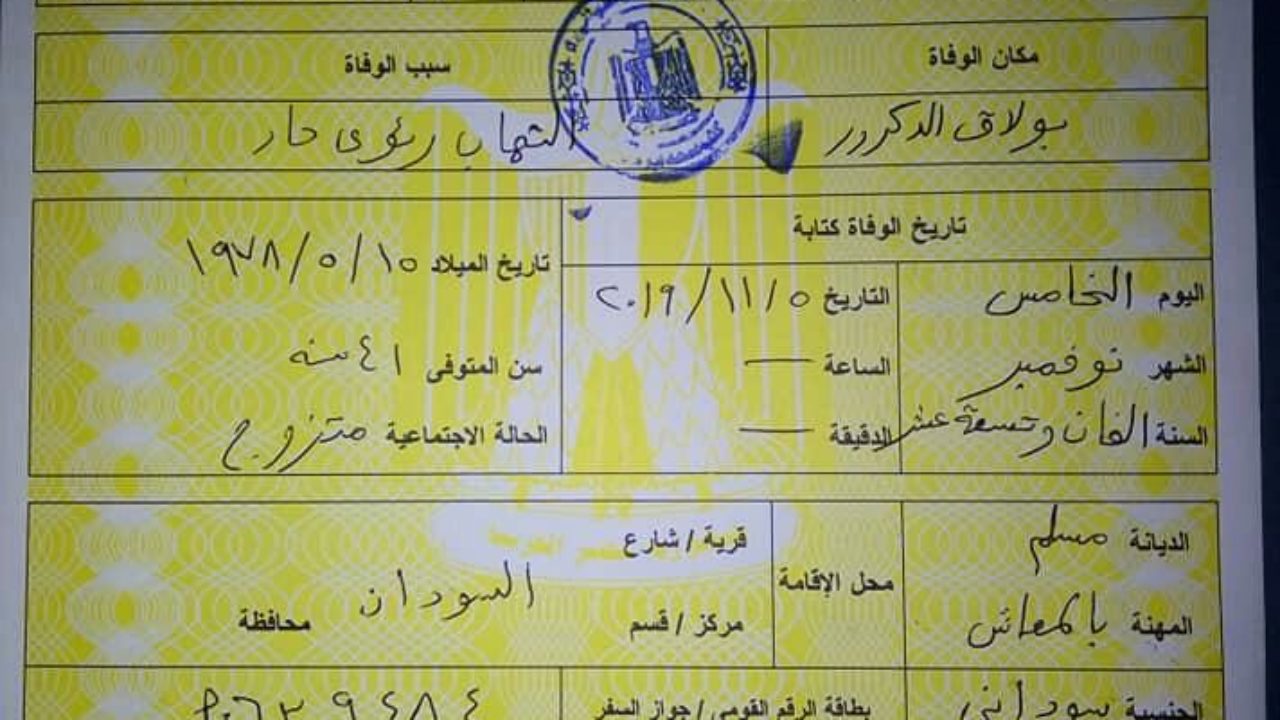 مكان الوفاة سبب الوفاة
بولاق الدكرور التهاب رئوى حاد
تاريخ الوفاة كتابة
تاريخ الميلاد ١٩٧٨/٥/١٥
اليوم الخامس التاريخ ٢٠١٩/١١/٥
الشهر نوفمبر الساعة — سن المتوفى ٤١ سنه
السنة الفان وتسعة عشر الدقيقة — الحالة الاجتماعية متزوج
الديانة مسلم
محل الإقامة قرية / شارع
السودان
المهنة بالمعاش مركز / قسم محافظة
الجنسية سودانى بطاقة الرقم القومي / جواز السفر